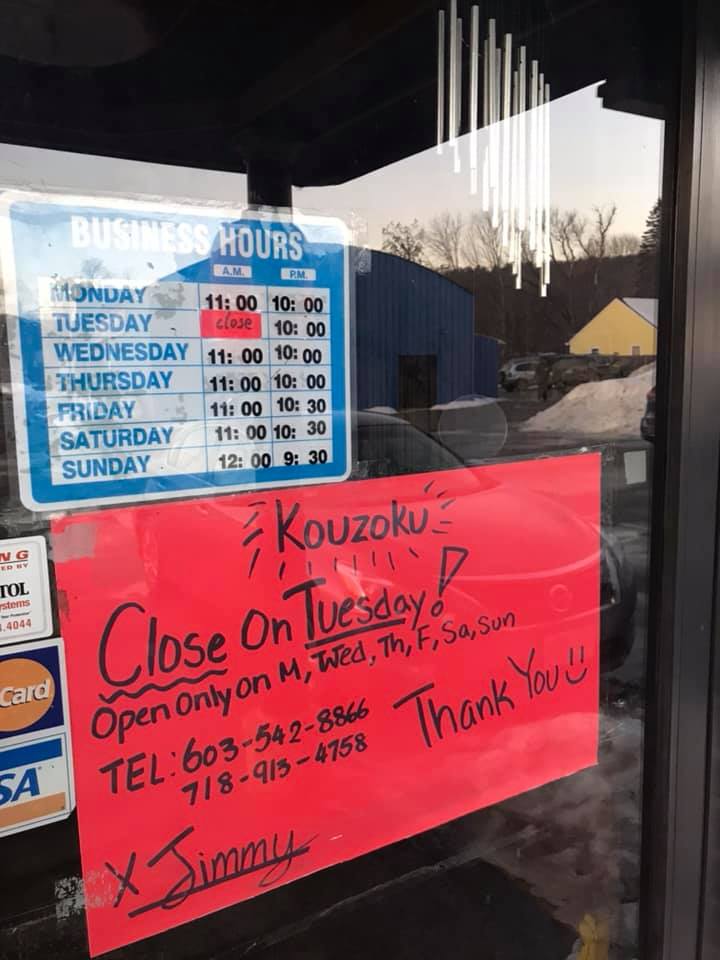 BUSINESS HOURS
A.M. P.M.
MONDAY 11:00 10:00
TUESDAY close 10:00
WEDNESDAY 11:00 10:00
THURSDAY 11:00 10:00
FRIDAY 11:00 10:30
SATURDAY 11:00 10:30
SUNDAY 12:00 9:30
Kouzoku
Close On Tuesday!
Open Only on M, Wed, Th, F, Sa, Sun
TEL: 603-542-8866
718-913-4758
Thank You
X Jimmy
NG
ED BY
TOL
ystems
.4044
Card
SA